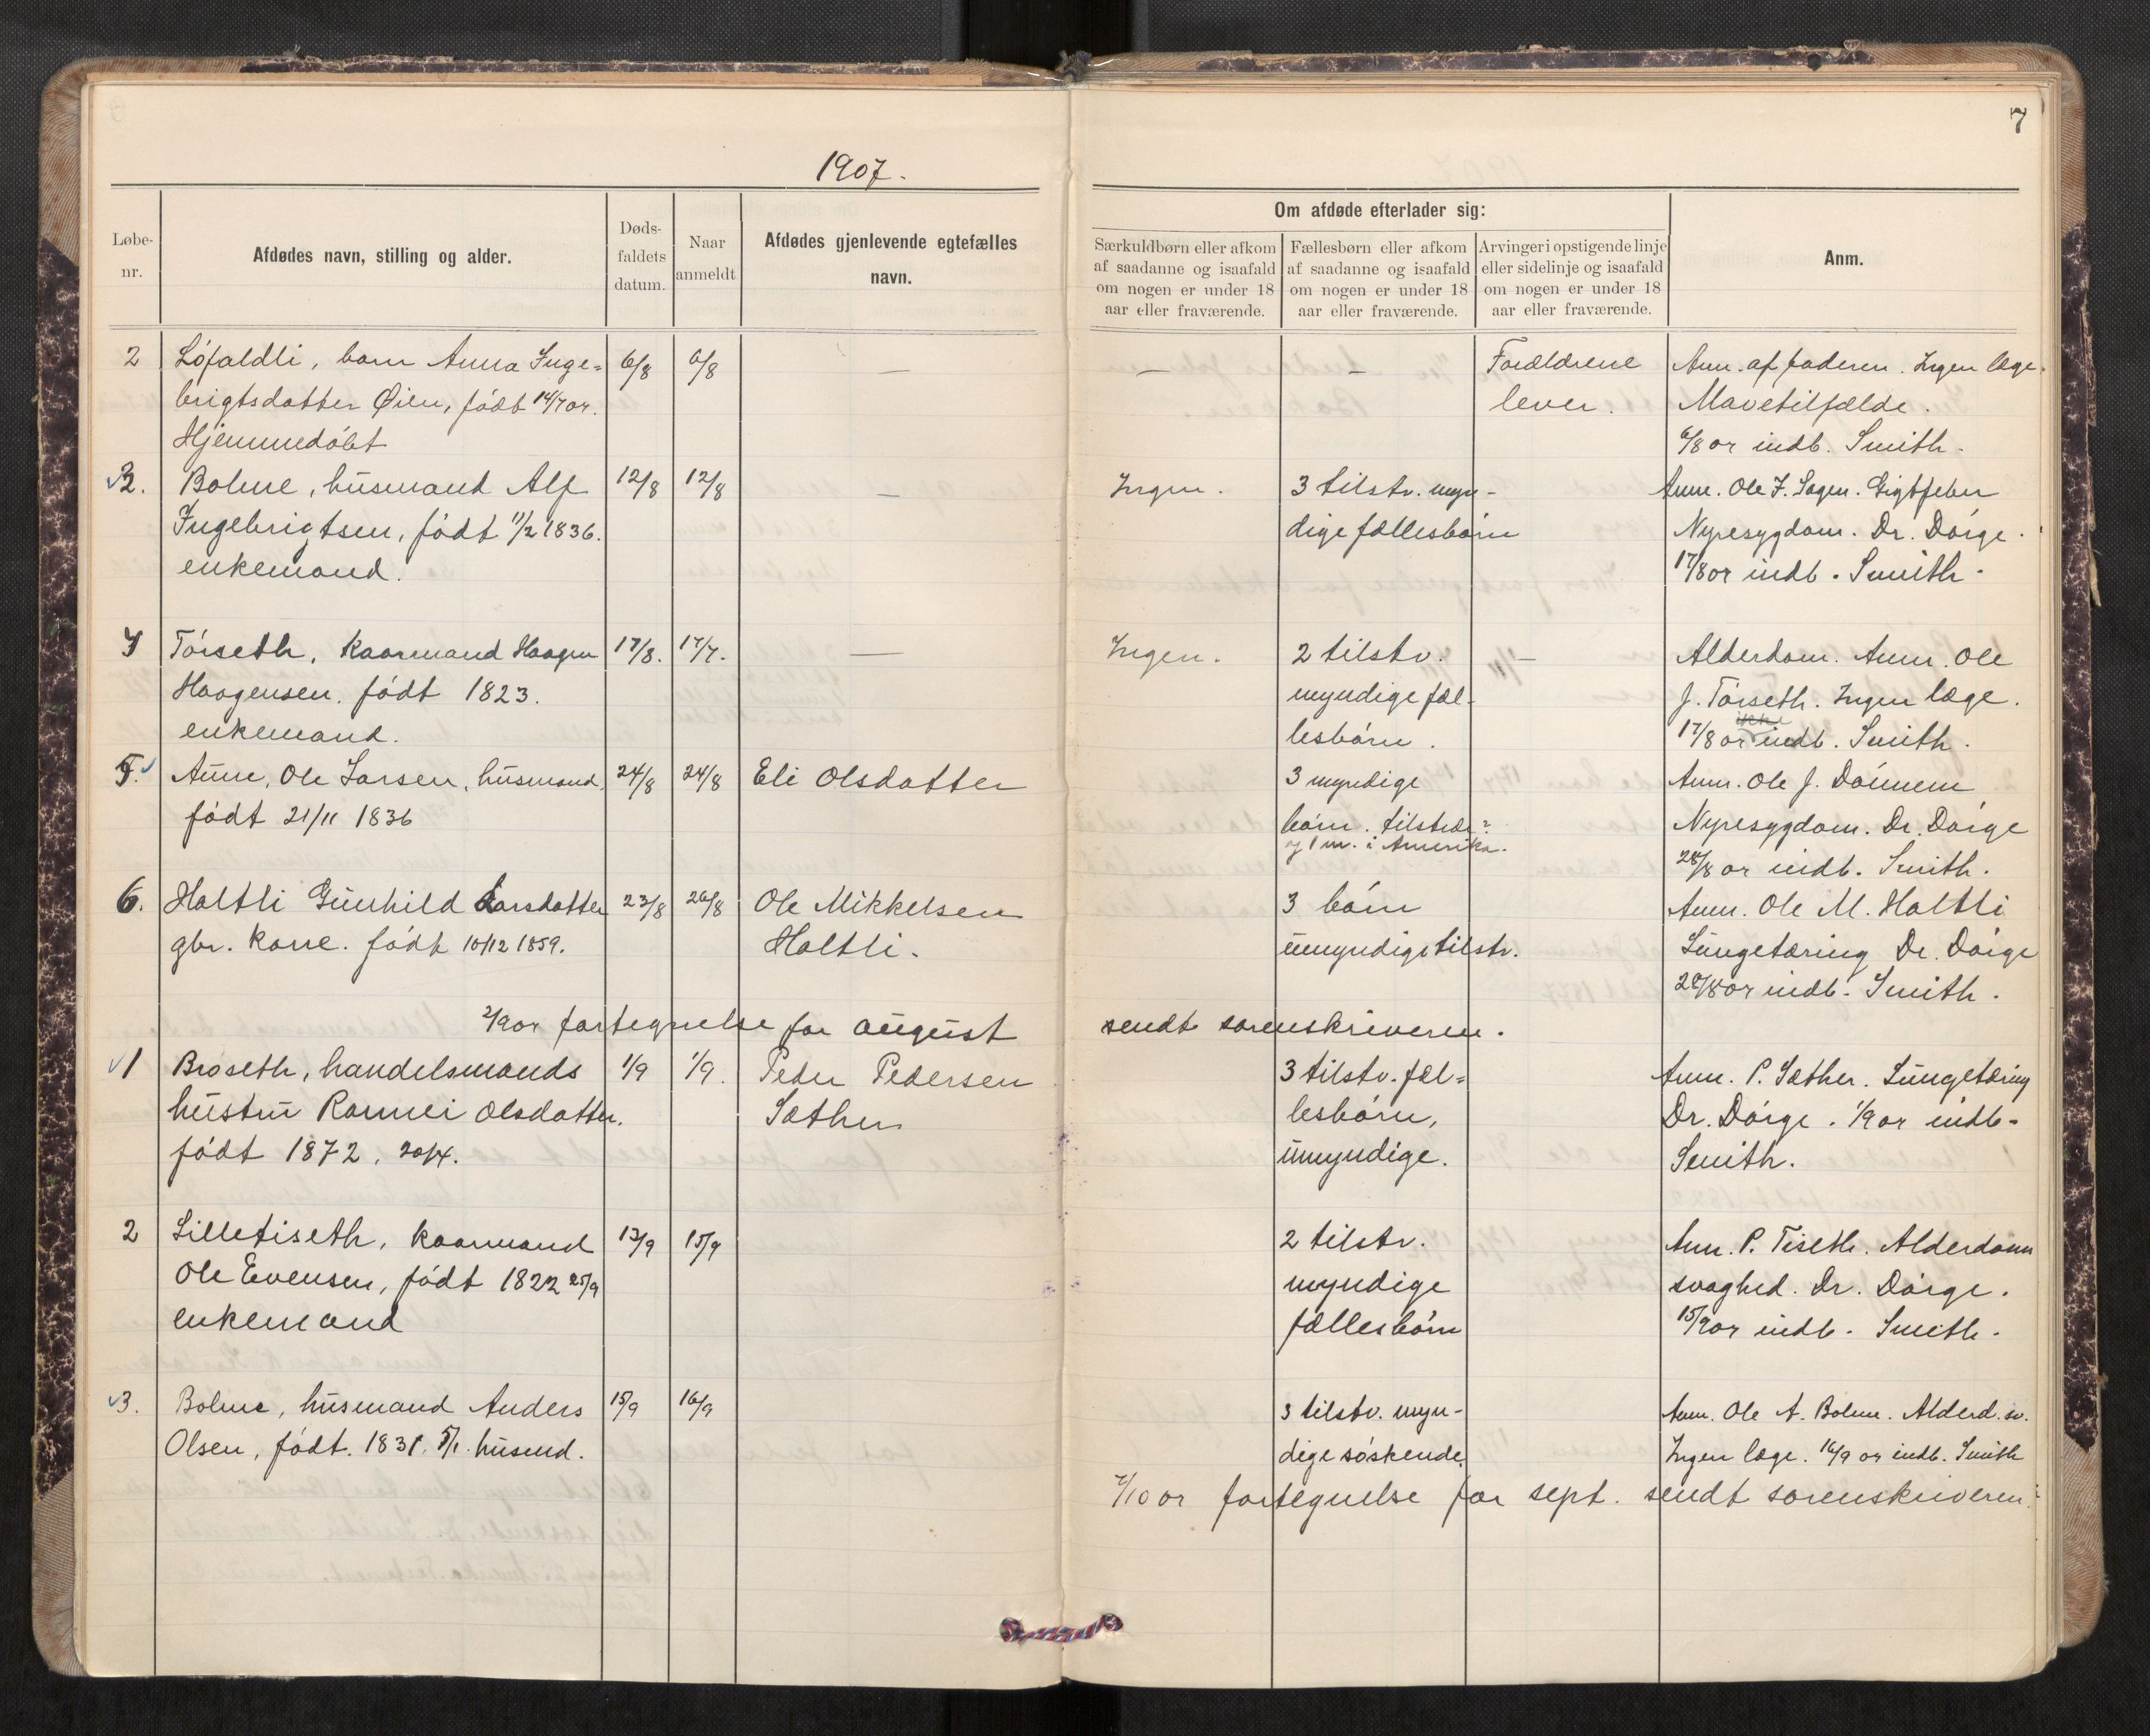 7
1907.
Løbe-nr.
Afdødes navn, stilling og alder.
Døds-faldets datum.
Naar anmeldt
Afdødes gjenlevende egtefælles navn.
Om afdøde efterlader sig:
Særkuldbørn eller afkom af saadanne og isaafald om nogen er under 18 aar eller fraværende.
Fællesbørn eller afkom af saadanne og isaafald om nogen er under 18 aar eller fraværende.
Arvinger i opstigende linje eller sidelinje og isaafald om nogen er under 18 aar eller fraværende.
Anm.
2 Löfaldli, barn Anna Inge= 6/8 6/8 — — — Forældrene Anm. af faderen. Ingen læge.
brigtsdatter Øien, födt 14/7 or. lever. Mavetilfælde.
Hjemmedöbt 6/8 or indb. Smith.
3. Bolme, husmand Alf 12/8 12/8 — Ingen. 3 tilstv. myn- Anm. Ole J. Sagen. Gigtfeber
Ingebrigtsen, födt 11/2 1836. dige fællesbörn Nyresygdom. Dr. Dörge.
enkemand. 17/8 or indb. Smith.
4 Törseth, kaarmand Haagen 17/8. 17/7. — Ingen. 2 tilstv. — Alderdom. Anm. Ole
Haagensen. födt 1823. myndige fæl- J. Törseth. Ingen læge.
enkemand. lesbörn. 17/8 or ikke indb. Smith.
5. Aune, Ole Larsen, husmand, 24/8 24/8 Eli Olsdatter 3 myndige Anm. Ole J. Dönnem
födt 21/11 1836 börn. tilstede Nyresygdom. Dr. Dörge
og 1 m. i Amerika. 28/8 or indb. Smith.
6. Holtli Gunhild Larsdatter 23/8 26/8 Ole Mikkelsen 3 börn Anm. Ole M. Holtli
gbr. kone. födt 10/12 1859. Holtli. umyndige tilstv. Lungetæring Dr. Dörge
28/8 or indb. Smith.
2/9 or fortegnelse for august sendt sorenskriveren.
1 Bröseth, handelsmands 1/9 1/9. Peder Pedersen 3 tilstv. fæl= Anm. P. Sæther. Lungetæring
hustru Rannei Olsdatter. Sæther lesbörn, Dr. Dörge. 1/9 or indb.
födt 1872, 20/4. umyndige. Smith.
2 Lilletiseth, kaarmand 13/9 15/9 2 tilstv. Anm. P. Tiseth. Alderdoms
Ole Evensen, födt 1822 25/9 myndige svaghed. Dr. Dörge.
enkemand fællesbörn 15/9 or indb. Smith.
3. Bolme, husmand Anders 15/9 16/9 3 tilstv. myn- Anm. Ole A. Bolme. Alderd. sv.
Olsen, födt. 1831. 5/1. husmd. dige söskende. Ingen læge. 16/9 or indb. Smith
2/10 or fortegnelse for sept. sendt sorenskriveren.